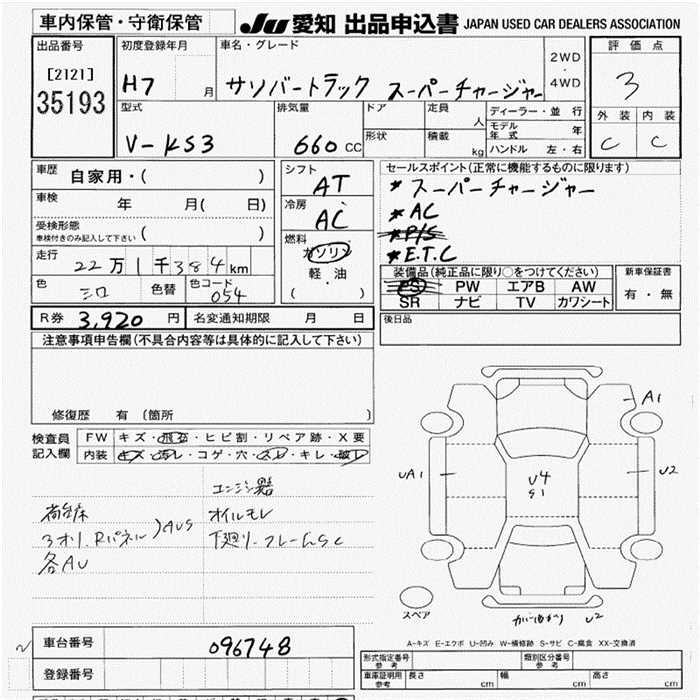 車内保管・守衛保管
JU 愛知 出品申込書 JAPAN USED CAR DEALERS ASSOCIATION
出品番号
[2121]
35193
初度登録年月
H7 月
車名・グレード
サンバートラック スーパーチャージャー
2WD
・
4WD
評価点
3
外装 内装
C C
型式
V-KS3
排気量
660 CC
ドア
形状
定員
人
積載
kg
ディーラー・並行
モデル年式 年
ハンドル 左・右
車歴 自家用・( )
車検 年 月( 日)
受検形態
車検付きのみ記入して下さい ( )
走行 22万1千384km
色
色替
色コード
054
シフト
AT
冷房
AC
燃料
ガソリン
・
軽油
( )
セールスポイント(正常に機能するものに限ります)
*スーパーチャージャー
*AC
*P/S
*E.T.C
装備品(純正品に限り○をつけてください)
PS PW エアB AW
SR ナビ TV カワシート
新車保証書
有・無
R券 3,920円 名変通知期限 月 日
後日品
注意事項申告欄(不具合内容等は具体的に記入して下さい)
修復歴 有 (箇所 )
検査員記入欄
FW キズ・飛石・ヒビ割・リペア跡・X要
内装 キズ・汚レ・コゲ・穴・スレ・キレ・破レ
エンジン器
荷台床
3オリ.Rパネル )AUS
各AU
オイルモレ
下廻リ・フレームSC
A1
UA1
U2
U4
S1
スペア
U2
A-キズ E-エクボ U-凹み W-補修跡 S-サビ C-腐食 XX-交換済
車台番号 096748
登録番号
形式指定番号
参考
類別区分番号
参考
車庫証明用
参考
長さ cm 幅 cm 高さ cm